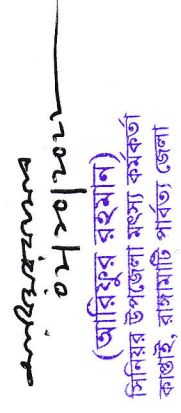 (আরিফুর রহমান)
সিনিয়র উপজেলা মৎস্য কর্মকর্তা
কাপ্তাই, রাঙ্গামাটি পার্বত্য জেলা